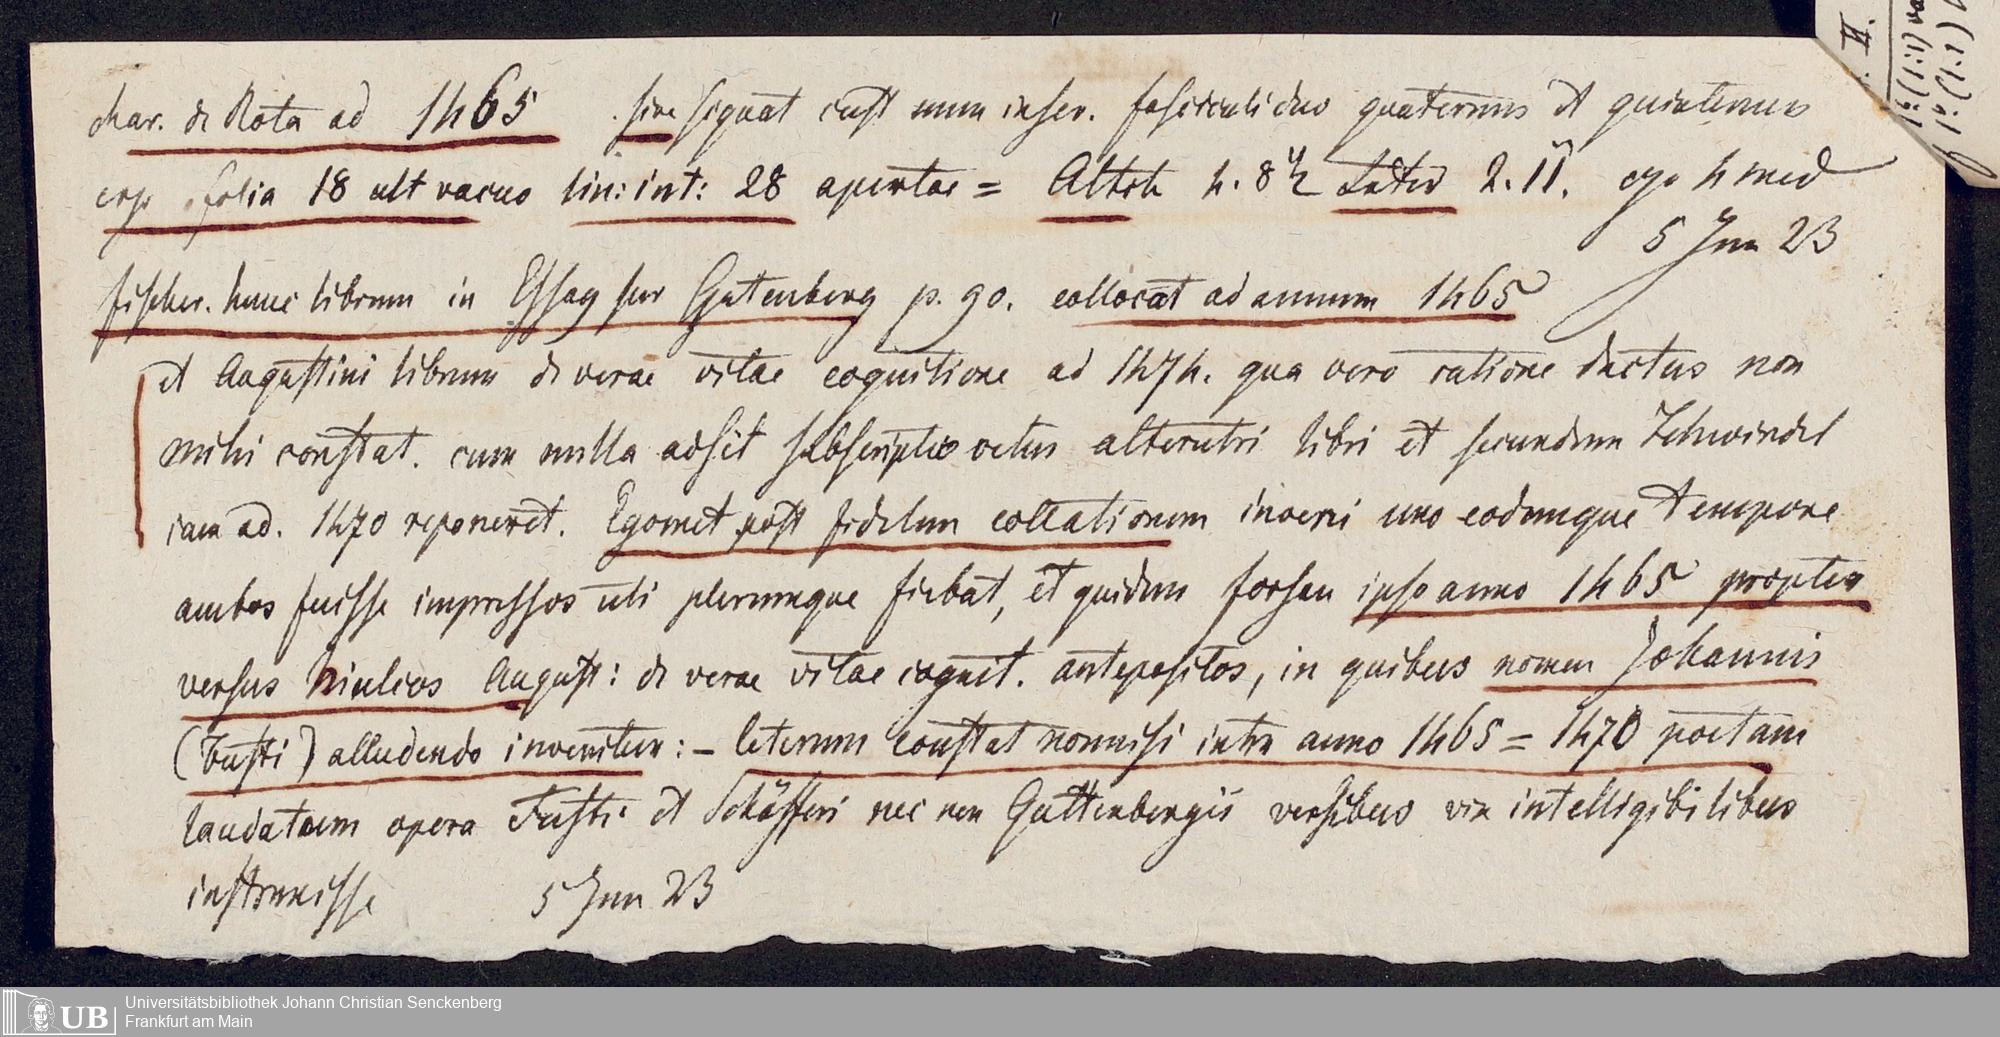 char. de Rota ad 1465 sine signat cust num inser. fasciculi duo quaternus et quinternus
ergo folia 18 ult vacuo lin: int: 28 apertae = Altoh h. 8 2. 11. ergo h med
5 Jun 23
fischer. hunc librum in Essay sur Gutenberg p. 90. collocat ad annum 1465
et Augustini librum de verae vitae cognitione ad 1474. qua vero ratione ductus non
mihi constat. cum nulla adsit subscriptio vetus alterutri libri et secundum Schwindel
iam ad. 1470 reponeret. Egomet post fidelem collationem inveni uno eodemque tempore
ambos fuisse impressos uti plerumque fiebat, et quidem forsan ipso anno 1465 propter
versus hiulcos August: de verae vitae cognit. antepositos, in quibus nomen Johannis
(Fusti) alludendo invenitur: – Ceterum constat nonnisi intra anno 1465 = 1470 poetam
laudatum opera Fusti et Schöfferi nec non Guttenbergii versibus vix intelligibilibus
instruxisse 5 Jun 23
II.
UB
Universitätsbibliothek Johann Christian Senckenberg
Frankfurt am Main